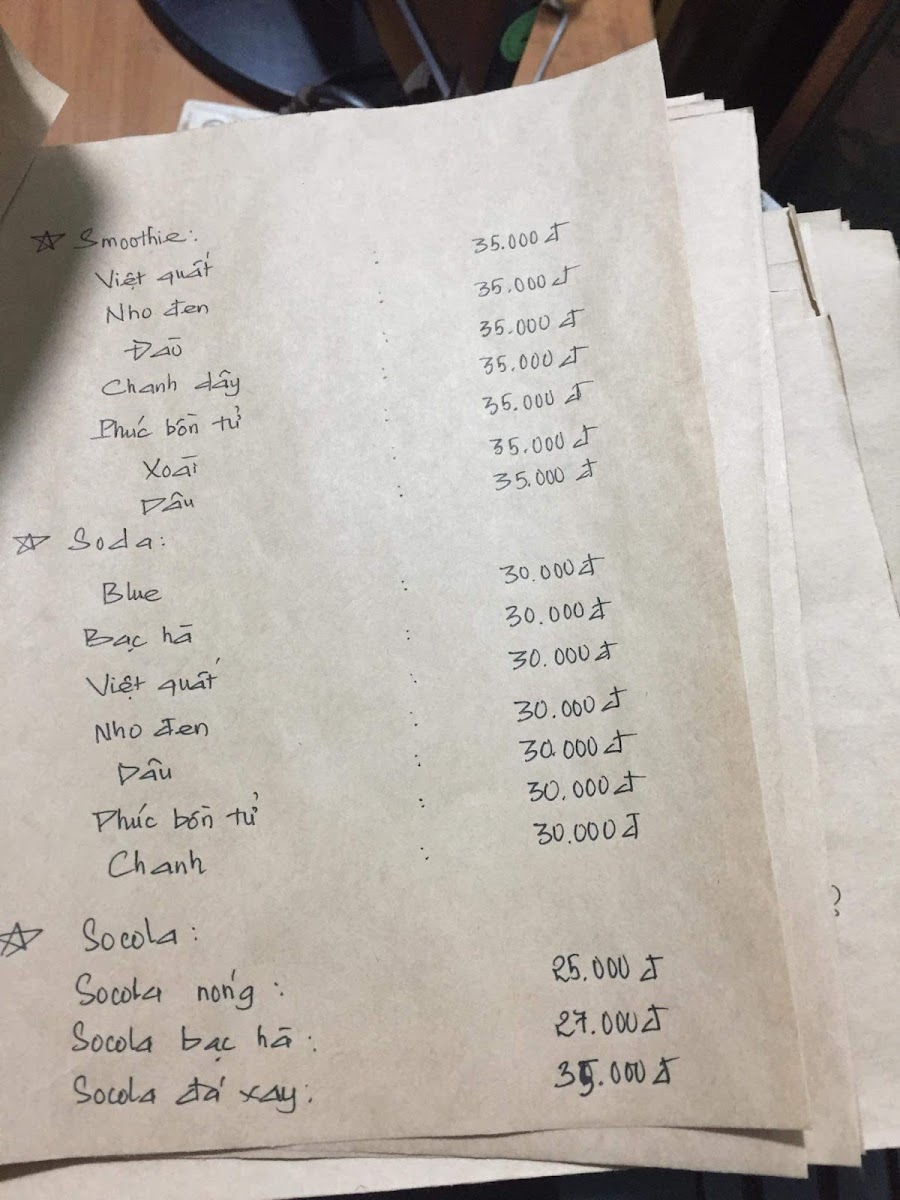 ☆ Smoothie:
Việt quất : 35.000 đ
Nho đen : 35.000 đ
Đào : 35.000 đ
Chanh dây : 35.000 đ
Phúc bồn tử : 35.000 đ
Xoài : 35.000 đ
Dâu : 35.000 đ
☆ Soda:
Blue : 30.000 đ
Bạc hà : 30.000 đ
Việt quất : 30.000 đ
Nho đen : 30.000 đ
Dâu : 30.000 đ
Phúc bồn tử : 30.000 đ
Chanh : 30.000 đ
☆ Socola:
Socola nóng : 25.000 đ
Socola bạc hà : 27.000 đ
Socola đá xay : 35.000 đ
?